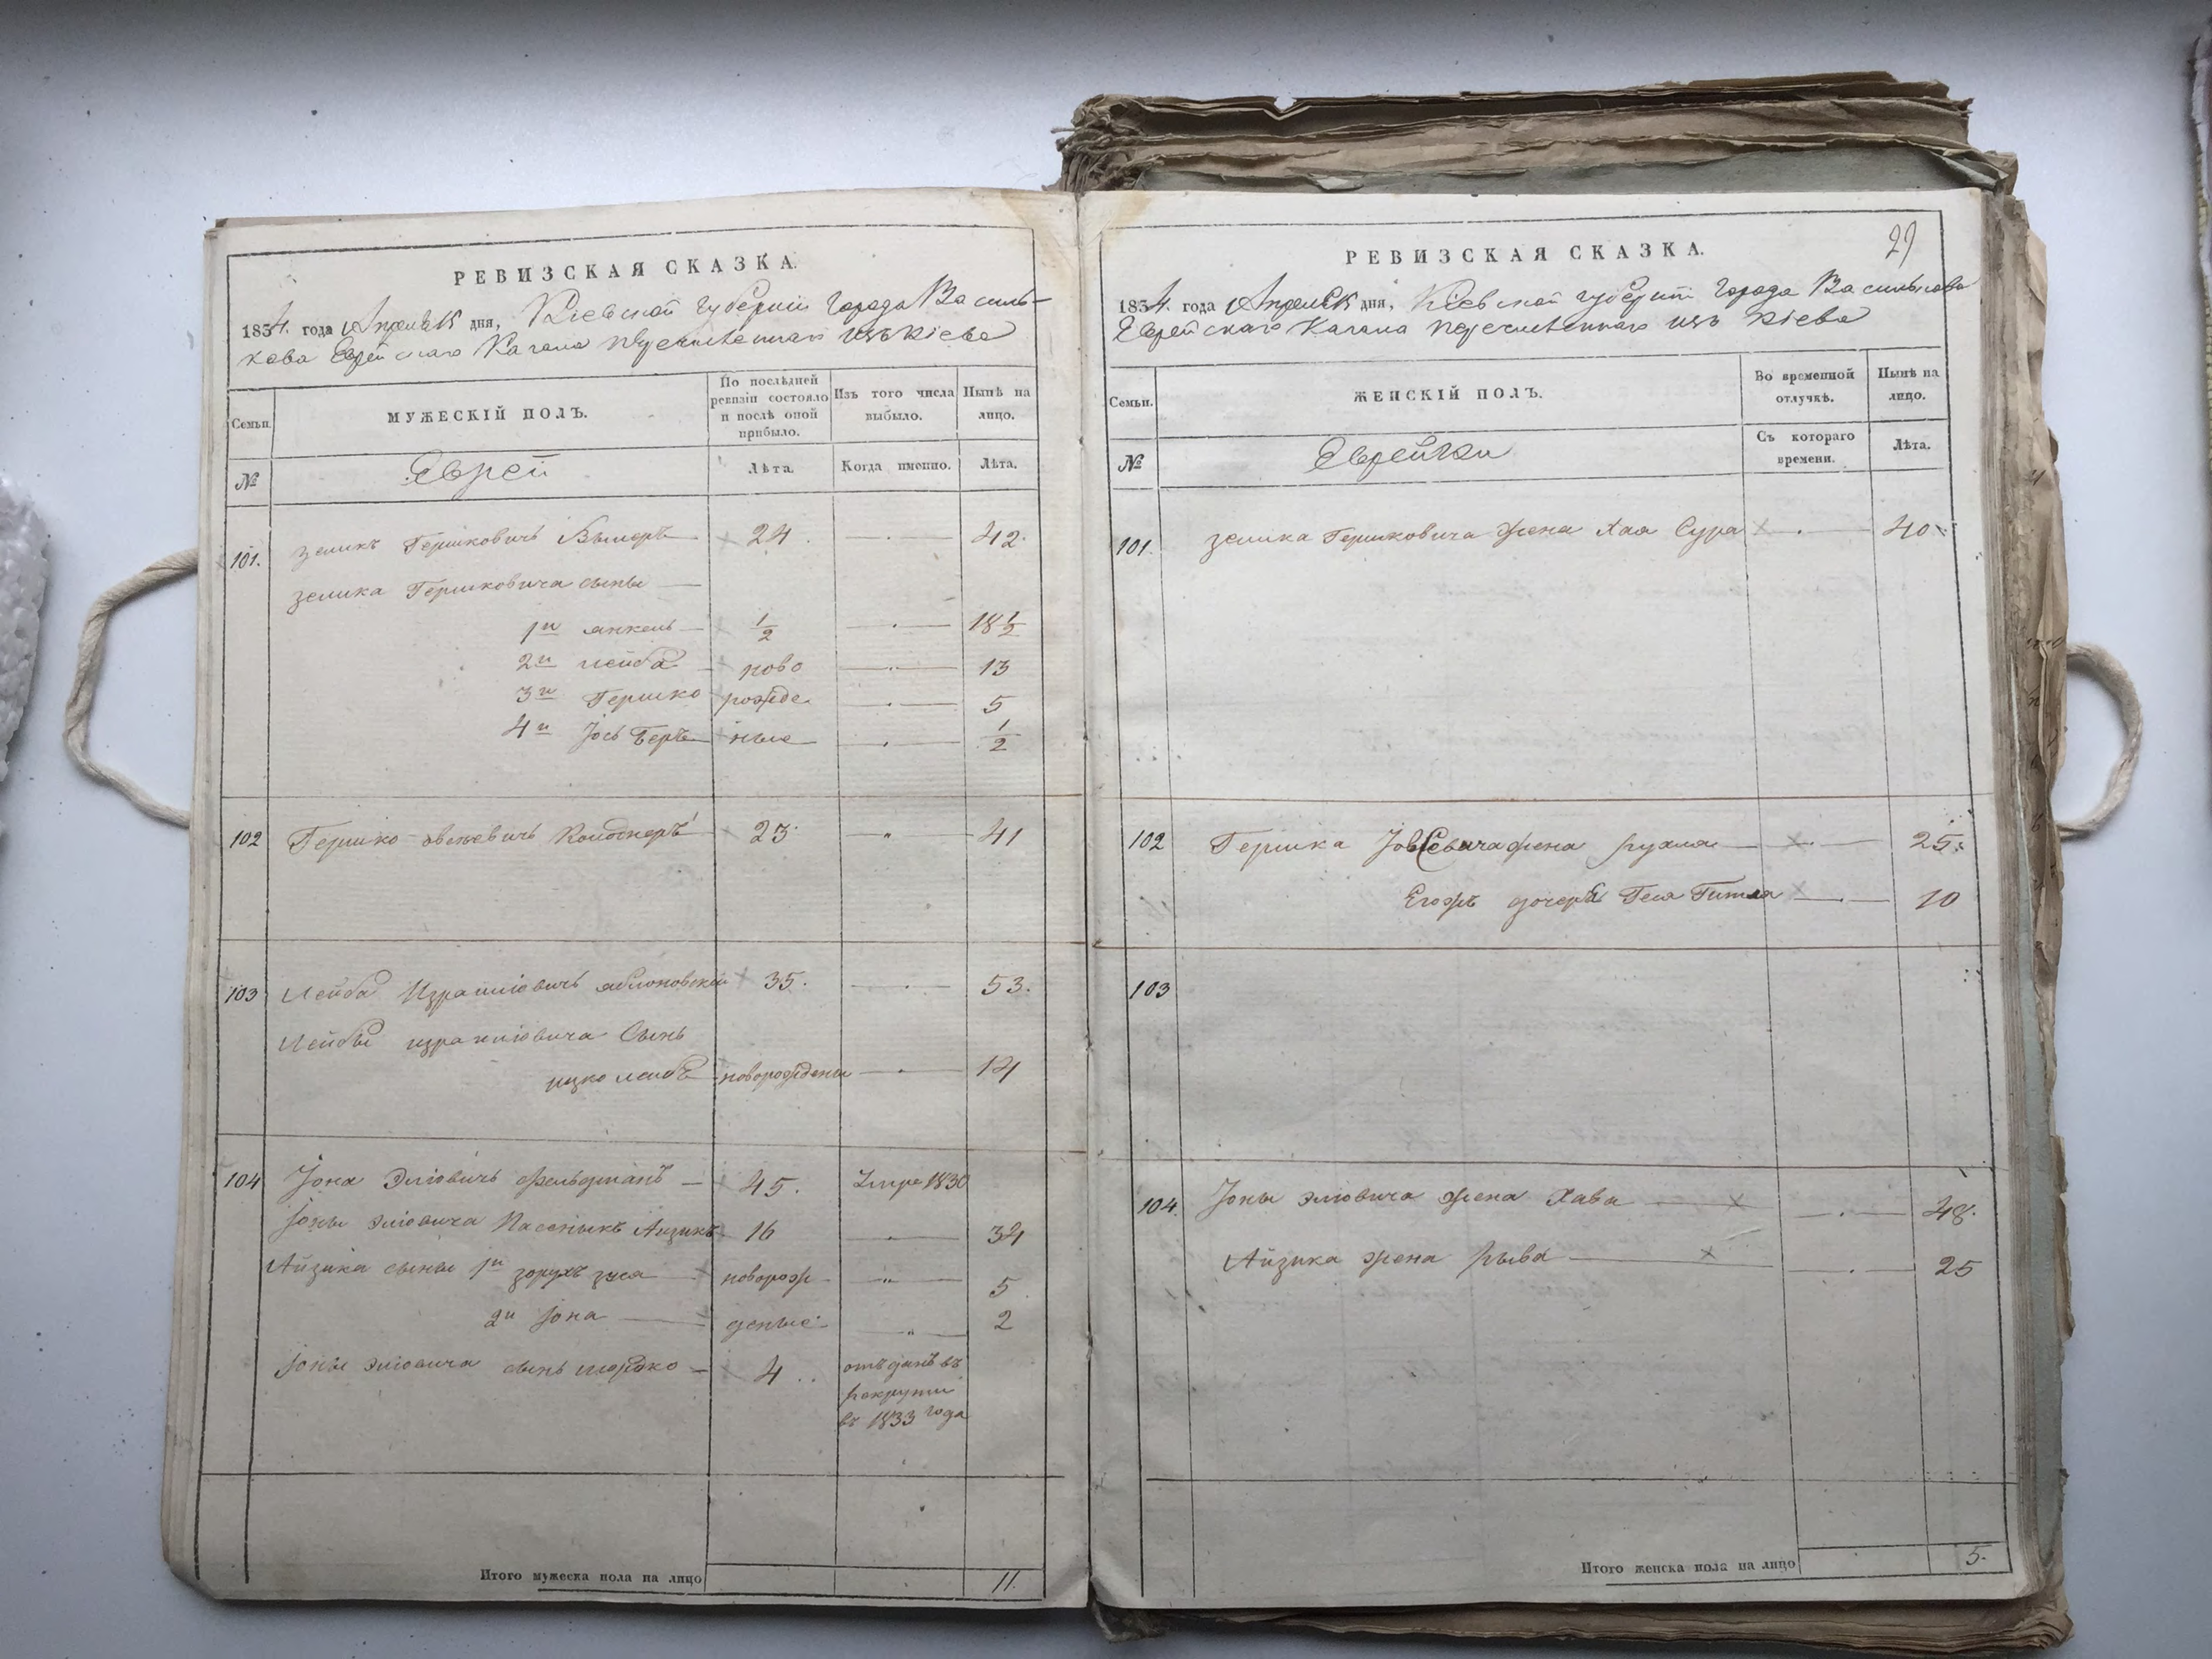 РЕВИЗСКАЯ СКАЗКА.
1834. года Апреля дня, Кіевской губерніи города Василь-
кова Еврейскаго Кагала перечисленнаго изъ Кіева
Семьи.
МУЖЕСКІЙ ПОЛЪ.
По послѣдней ревизіи состояло и послѣ оной прибыло.
Изъ того числа выбыло.
Нынѣ на лицо.
№
Еврей
Лѣта.
Когда именно.
Лѣта.
101. Зеликъ Гершковичъ 24. 42.
Зелика Гершковича сыны
1й Янкель 1/2 18 1/2
2й Лейба ново 13
3й Гершко рожде 5
4й Іось Беръ ные 1/2
102 Гершко 23. 41
103 Лейба Израиліовичъ Яблоновской 35. 53.
Лейбы Израиліовича Сынъ
Ицко Лейбъ новорожденный 14
104 Іона Эліовичъ Фельдманъ 45. Умре 1830
Іоны Эліовича Пасынкъ Айзикъ 16 34
Айзика сыны 1й новорож 5
2й Іона деные 2
Іоны Эліовича сынъ 4 отъданъ въ
рекруты
въ 1833 года
Итого мужеска пола на лицо 11.
29
РЕВИЗСКАЯ СКАЗКА.
1834. года Апреля дня, Кіевской губерніи города Василькова
Еврейскаго Кагала перечисленнаго изъ Кіева
Семьи.
ЖЕНСКІЙ ПОЛЪ.
Во временной отлучкѣ.
Нынѣ на лицо.
№
Еврейки
Съ котораго времени.
Лѣта.
101. Зелика Гершковича жена Хая Сура 40
102 Гершка жена Рухля 25.
Егожъ дочерь Гитля 10
103
104. Іоны Эліовича жена Хава 48.
Айзика жена Рыва 25
Итого женска пола на лицо 5.